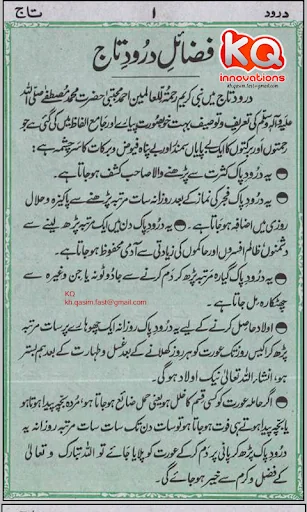 درود
۱
تاج
KQ
innovations
kb.qasim.fast@gmail.com
فضائل درود تاج
درود تاج میں نبی کریم رحمۃ للعالمین احمد مجتبیٰ حضرت محمد مصطفےٰ صلی اللہ
علیہ وآلہ وسلم کی تعریف و توصیف بہت خوبصورت پیارے اور جامع الفاظ میں کی گئی ہے جو
رحمتوں اور برکتوں کا ایک بے پایاں سمندر اور بے پناہ فیوض و برکات کا سرچشمہ ہے:
● یہ درود پاک کثرت سے پڑھنے والا صاحب کشف ہو جاتا ہے۔
● یہ درود پاک فجر کی نماز کے بعد روزانہ سات مرتبہ پڑھنے سے پاکیزہ و حلال
روزی میں اضافہ ہو جاتا ہے۔ ● یہ درود پاک دن میں ایک مرتبہ پڑھ لینے سے
دشمنوں ظالم افسروں اور حاکموں کی زیادتی سے آدمی محفوظ ہو جاتا ہے۔
● یہ درود پاک گیارہ مرتبہ پڑھ کر دم کرنے سے جادو ٹونہ یا جن وغیرہ سے
چھٹکارہ مل جاتا ہے۔
KQ
kb.qasim.fast@gmail.com
● اولاد حاصل کرنے کے لیے یہ درود پاک روزانہ ایک چھوہارے پر سات مرتبہ
پڑھ کر اکیس روز تک عورت کو ہر روز کھلانے کے بعد غسل و طہارت کے بعد ہم بستر
ہو، انشاء اللہ تعالیٰ نیک اولاد ہو گی۔
● اگر حاملہ عورت کو کسی قسم کا خلل ہو یعنی حمل ضائع ہو جاتا ہو، مردہ بچہ پیدا ہوتا ہو
یا بچہ پیدا ہوتے ہی فوت ہو جاتا ہو تو سات دن تک سات سات مرتبہ روزانہ یہ
درود پاک پڑھ کر پانی پر دم کر کے عورت کو پلایا جائے تو اللہ تبارک و تعالیٰ
کے فضل و کرم سے خیر ہو جائے گی۔